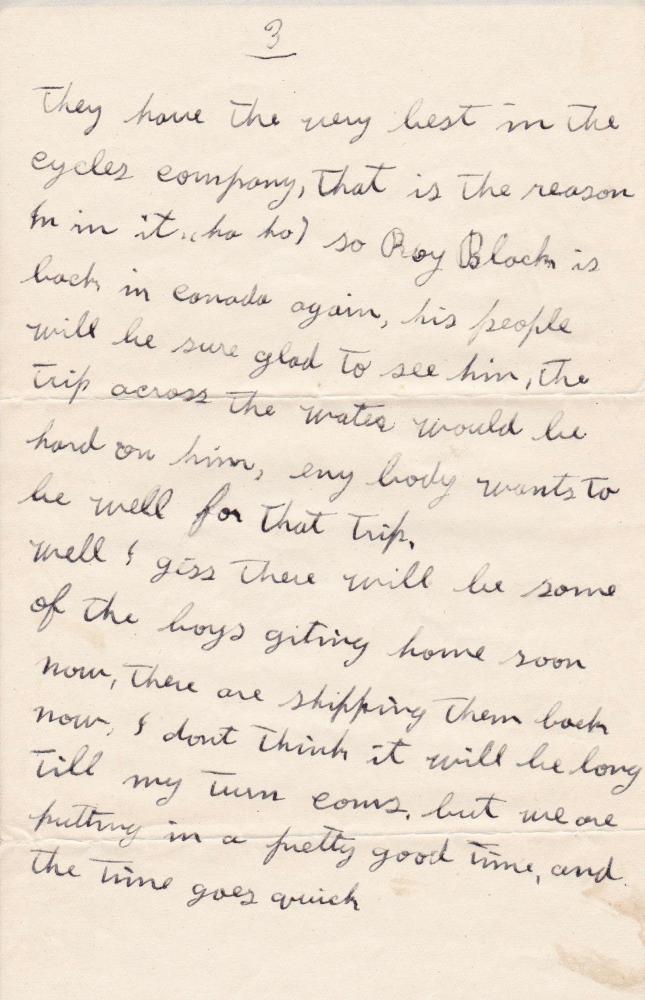 3
They have the very best in the
cycles company, that is the reason
Im in it., (ha ha) so Roy Black is
back in canada again, his people
will be sure glad to see him, the
trip across the water would be
hard on him, eny body wants to
be well for that trip.
well I gess there will be some
of the boys giting home soon
now, there are shipping them back
now, I dont think it will be long
till my turn coms, but we are
putting in a pretty good time, and
the time goes quick